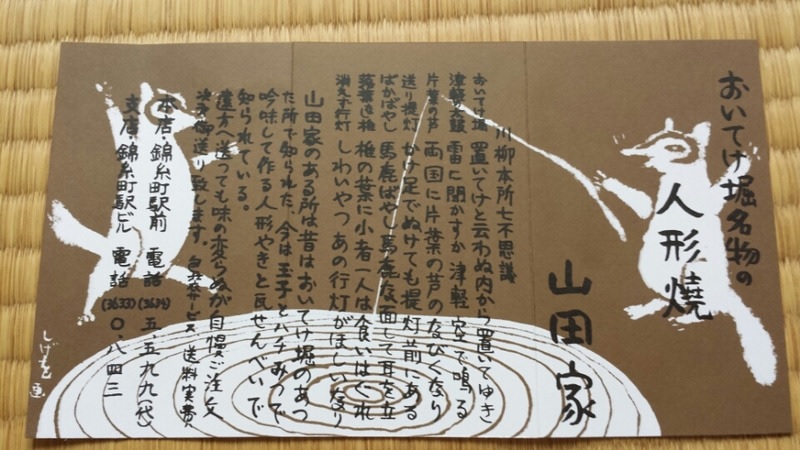 おいてけ堀名物の
人形燒
山田家
川柳本所七不思議
おいてけ堀 置いてけと云わぬ内から置いてゆき
津軽の太鼓 雷に聞かすか津軽空で鳴る
片葉の芦 両国に片葉の芦のなびくなり
送り提灯 かけ足でぬけても提灯前にある
ばかばやし 馬鹿ばやし馬鹿な面して耳を立
落葉なき椎 椎の葉に小者一人は食いはぐれ
消えず行灯 しわいやつあの行灯がほしいなり
山田家のある所は昔はおいてけ堀のあつ
た所で知られた、今は玉子とハチみつで
吟味して作る人形やきと瓦せんべいで
知られている。
遠方へ送っても味の変らぬが自慢ご注文
次才御送り致します。 送料実費
本店・錦糸町駅前 電話(3634)五、五九九(代)
支店・錦糸町駅ビル 電話(3633)〇、八四三
しげを画